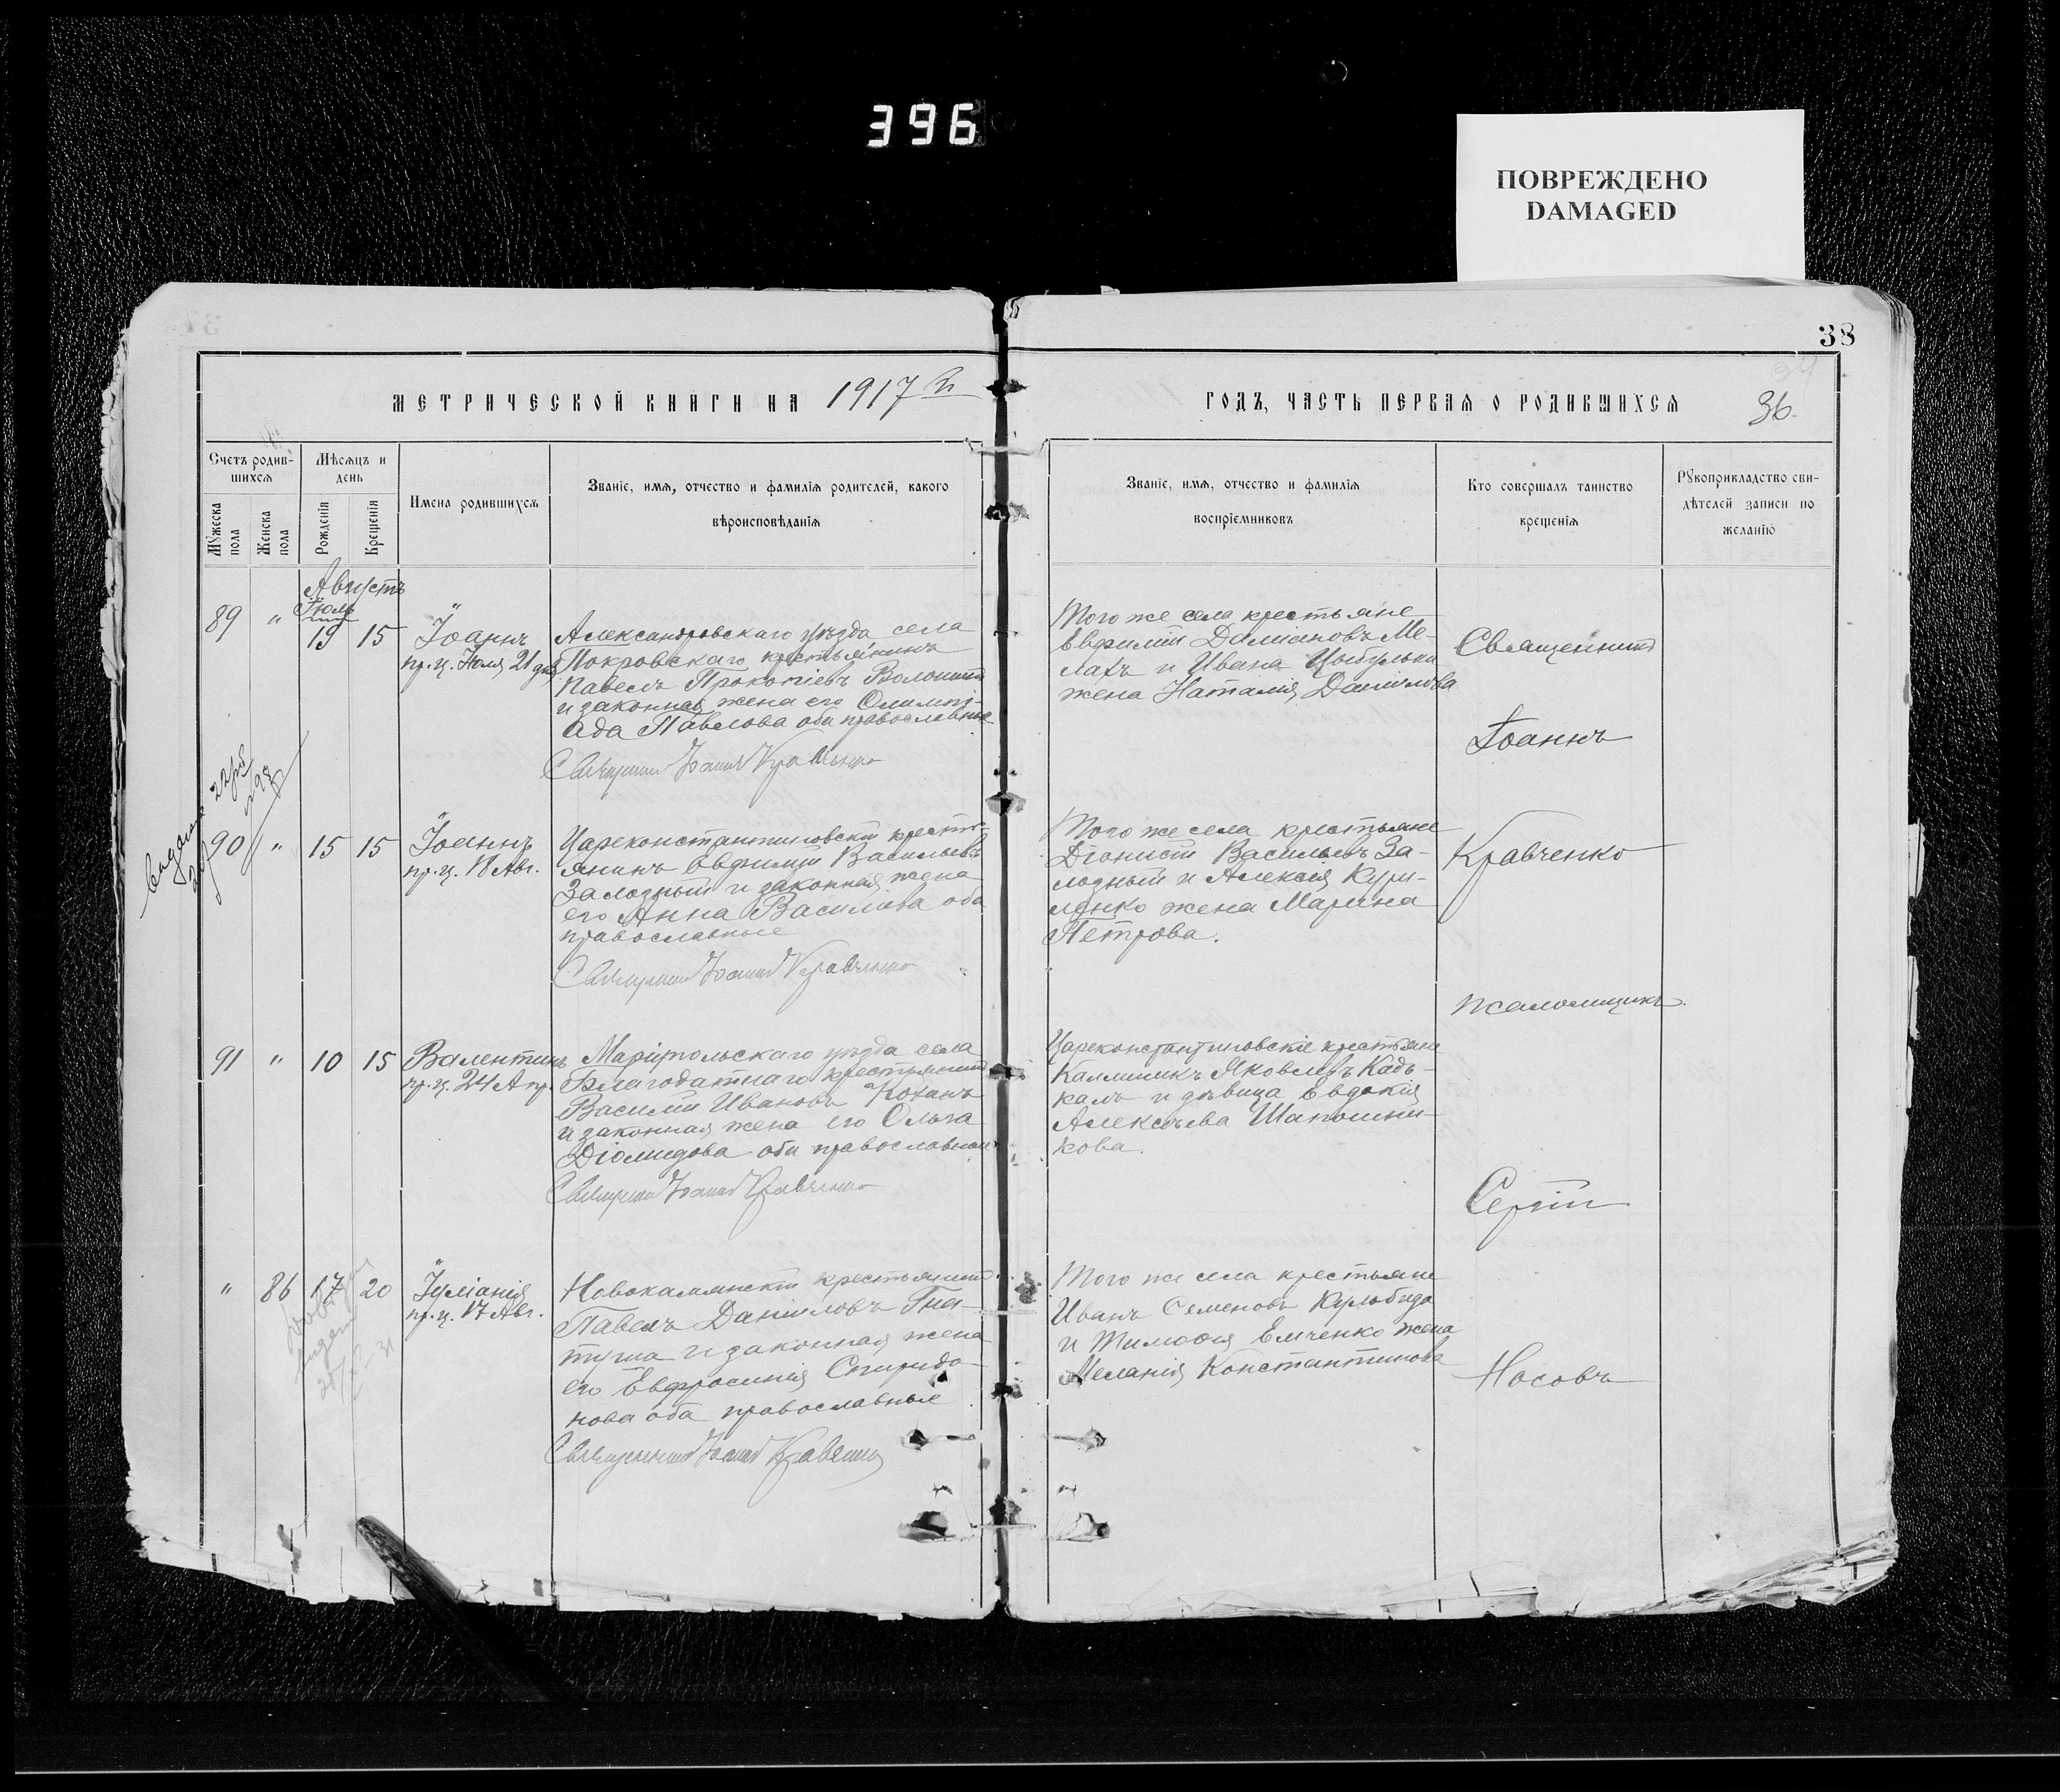 396
ПОВРЕЖДЕНО
DAMAGED
38
МЕТРИЧЕСКОЙ КНИГИ НА 1917 г.
ГОДЪ, ЧАСТЬ ПЕРВАЯ О РОДИВШИХСЯ
36.
Счетъ родив-
шихся
Мѣсяцъ и
день
Мужеска
пола
Женска
пола
Рожденія
Крещенія
Имена родившихся
Званіе, имя, отчество и фамилія родителей, какого
вѣроисповѣданія
Званіе, имя, отчество и фамилія
воспріемниковъ
Кто совершалъ таинство
крещенія
Рукоприкладство сви-
дѣтелей записи по
желанію
Августъ
Іюль
89 " 19 15
Іоаннъ
пр. ц. Іюля 21 дня
Александровскаго уѣзда села
Покровскаго крестьянинъ
Павелъ Прокопіевъ
и законная жена его Олимпі-
ада Павлова оба православные
Священникъ Іоаннъ Кравченко
Того же села крестьяне
Евфимій Даміановъ Ме-
лахъ и Ивана Цыбульки
жена Наталія Даніилова
Священникъ
Іоаннъ
90 " 15 15
Іоаннъ
пр. ц. 18 Авг.
Цареконстантиновскій кресть-
янинъ Евфимій Васильевъ
Залозный и законная жена
его Анна Василіева оба
православные
Священникъ Іоаннъ Кравченко
Того же села крестьяне
Діонисій Васильевъ За-
лозный и Алексія Кури-
ленко жена Марина
Петрова.
Кравченко
псаломщикъ
91 " 10 15
Валентинъ
пр. ц. 24 Апр.
Маріупольскаго уѣзда села
Благодатнаго крестьянинъ
Василій Ивановъ Коханъ
и законная жена его Ольга
Діомидова оба православные
Священникъ Іоаннъ Кравченко
Цареконстантиновскіе крестьяне
Каллиникъ Яковлевъ Кадь-
калъ и дѣвица Евдокія
Алексѣева Шапошни-
кова.
Сергій
" 86 17 20
Іуліанія
пр. ц. 17 Авг.
Новокаменскій крестьянинъ
Павелъ Даніиловъ Гна-
туша и законная жена
его Евфросинія Спиридо-
нова оба православные
Священникъ Іоаннъ Кравченко
Того же села крестьяне
Иванъ Семеновъ Кульбида
и Тимофея Емченко жена
Меланія Константинова
Носовъ